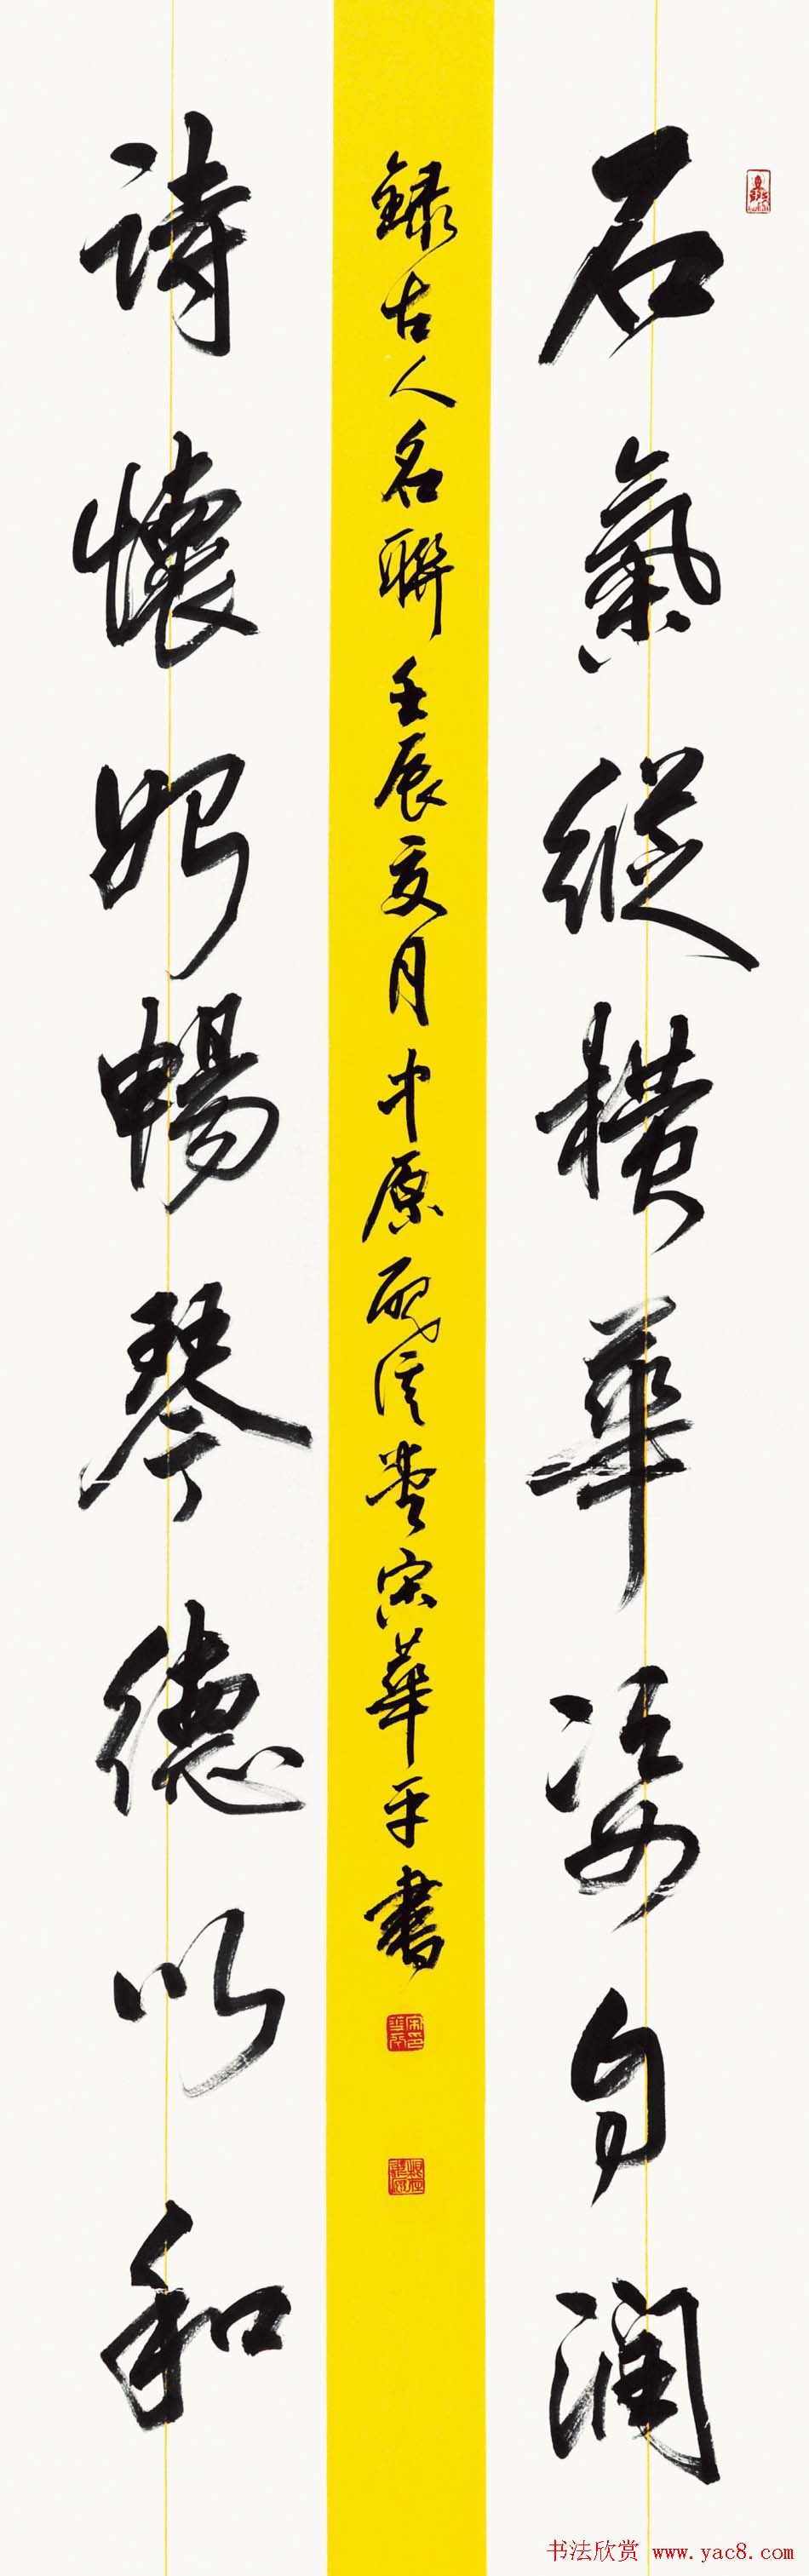 石氣縱橫華姿自潤
錄古人名聯壬辰夏月中原堂宋華平書
詩懷舒暢琴德以和
书法欣赏 www.yac8.com